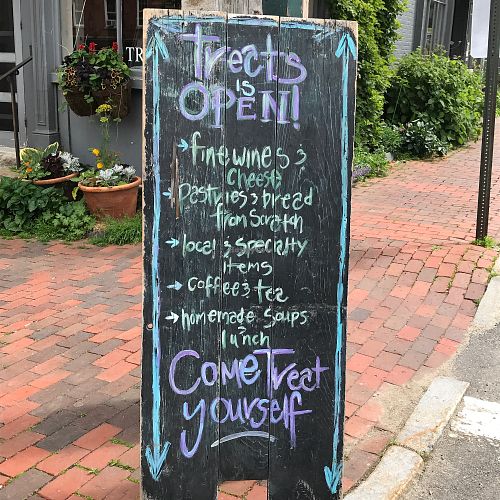 TR
Treats
is
OPEN!
→ fine wines &
cheeses
→ pastries & bread
from scratch
→ local & specialty
items
→ coffee & tea
→ homemade soups
& lunch
Come Treat
yourself